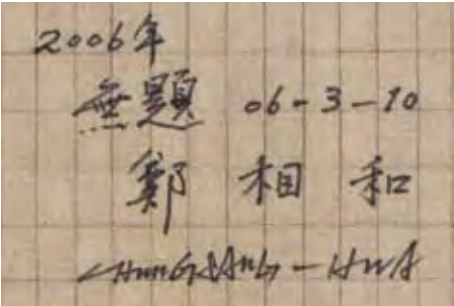 2006年
無題 06-3-10
鄭 相 和
CHUNG SANG-HWA